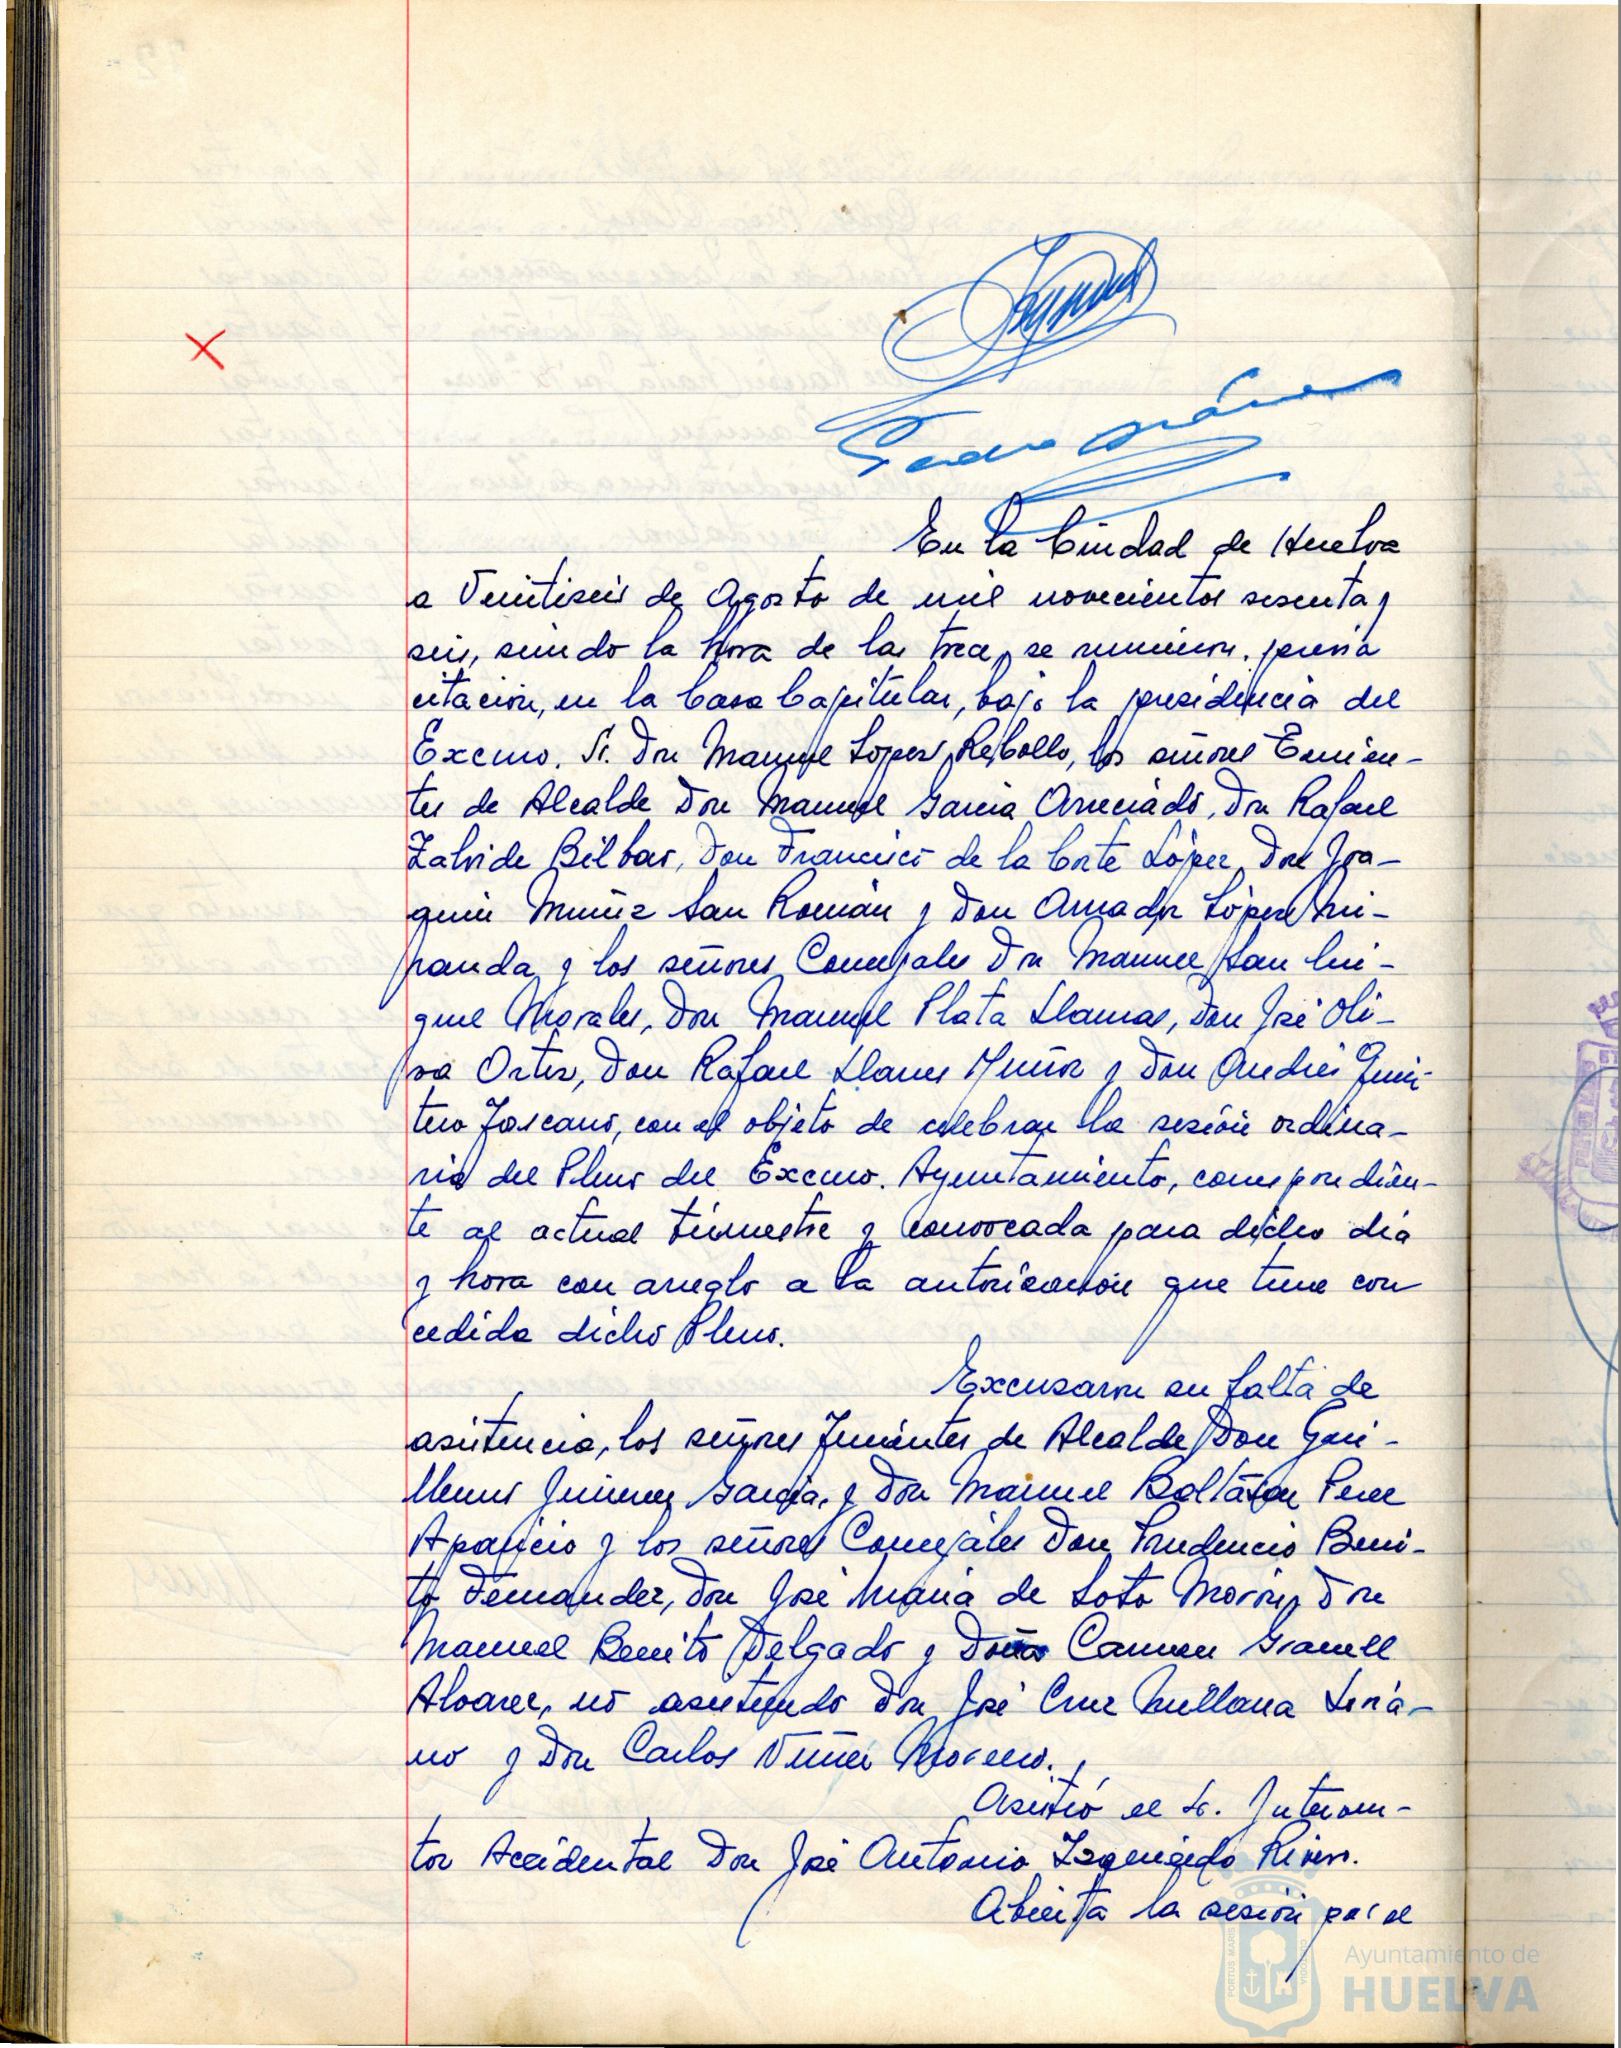 En la Ciudad de Huelva
a Veintiseis de Agosto de mil novecientos sesenta y
seis, siendo la hora de las trece, se reunieron, previa
citación, en la Casa Capitular, bajo la presidencia del
Excmo. Sr. Don Manuel López Rebollo, los señores Tenien-
tes de Alcalde Don Manuel García Arreciado, Don Rafael
Zalvide Bilbao, Don Francisco de la Corte López, Don Joa-
quin Muñiz San Román y Don Amador López Mi-
randa y los señores Concejales Don Manuel San Mi-
guel Morales, Don Manuel Plata Llamas, Don José Oli-
va Ortiz, Don Rafael Llanes Muñoz y Don Andrés Quin-
tero Toscano, con el objeto de celebrar la sesión ordina-
ria del Pleno del Excmo. Ayuntamiento, correspondien-
te al actual trimestre y convocada para dicho día
y hora con arreglo a la autorización que tiene con
cedida dicho Pleno.
Excusaron su falta de
asistencia, los señores Tenientes de Alcalde Don Gui-
llermo Jimenez García, y Don Manuel Baltasar Perez
Aparicio y los señores Concejales Don Prudencio Beni-
to Fernandez, Don José María de Soto Morón, Don
Manuel Benito Delgado y Doña Carmen Granell
Alvarez, no asistiendo Don José Cruz Millana
y Don Carlos Viñez Moreno.
Asistió el Sr. Interven-
tor Accidental Don José Antonio Izquierdo Rivero.
Abierta la sesión por el
Ayuntamiento de
HUELVA
PORTUS MARIS
CUSTODIA